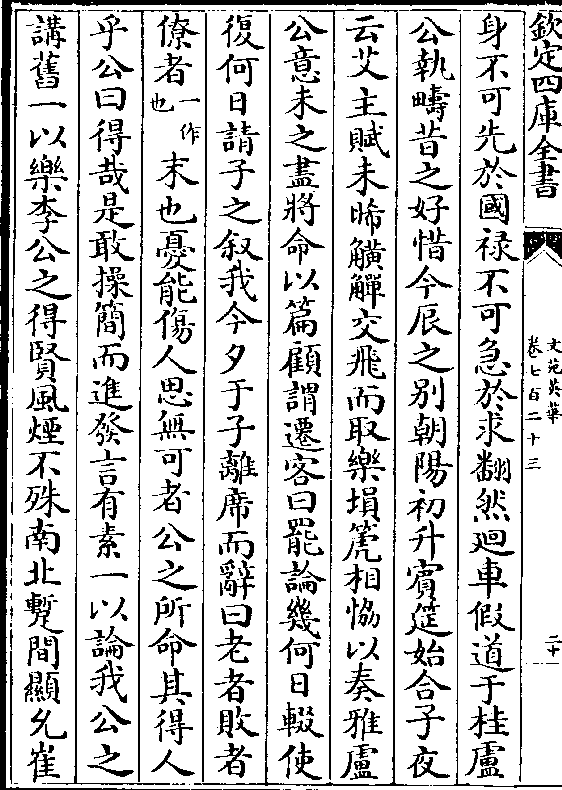 欽定四庫全書
文苑英華
卷七百二十三
二十
身不可先於國祿不可急於求翻然迴車假道于桂盧
公執疇昔之好惜今辰之別朝陽初升賓筵始合子夜
云艾主賦未晞觵觶交飛而取樂塤箎相恊以奏雅盧
公意未之盡將命以篇顧謂遷客曰罷論幾何日輟使
復何日請子之叙我今夕于子離席而辭曰老者敗者
僚者一作也末也憂能傷人思無可者公之所命其得人
乎公曰得哉是敢操簡而進發言有素一以論我公之
講舊一以樂李公之得賢風煙不殊南北蹔間顯允崔